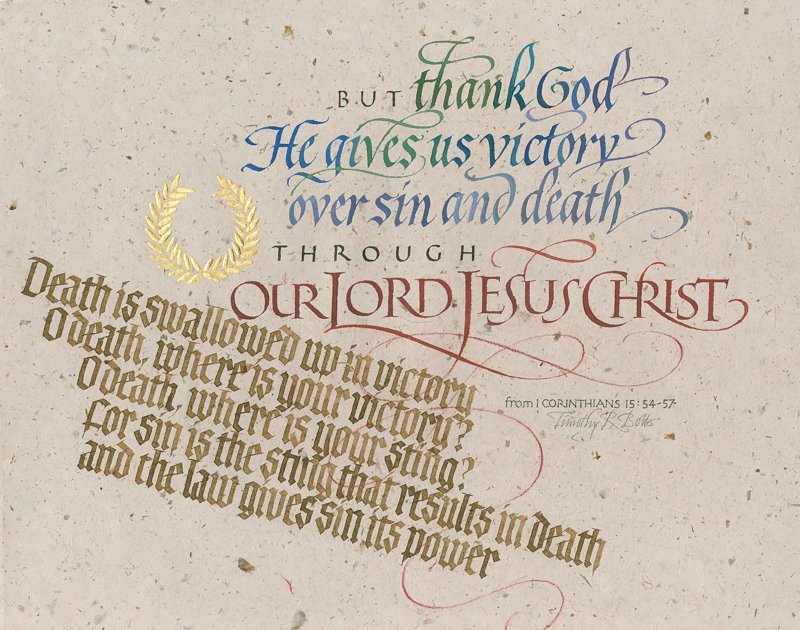 BUT thank God
He gives us victory
over sin and death
THROUGH
OUR LORD JESUS CHRIST
Death is swallowed up in victory
O death, where is your victory?
O death, where is your sting?
For sin is the sting that results in death
and the law gives sin its power
from 1 CORINTHIANS 15:54-57
Timothy R. Botts